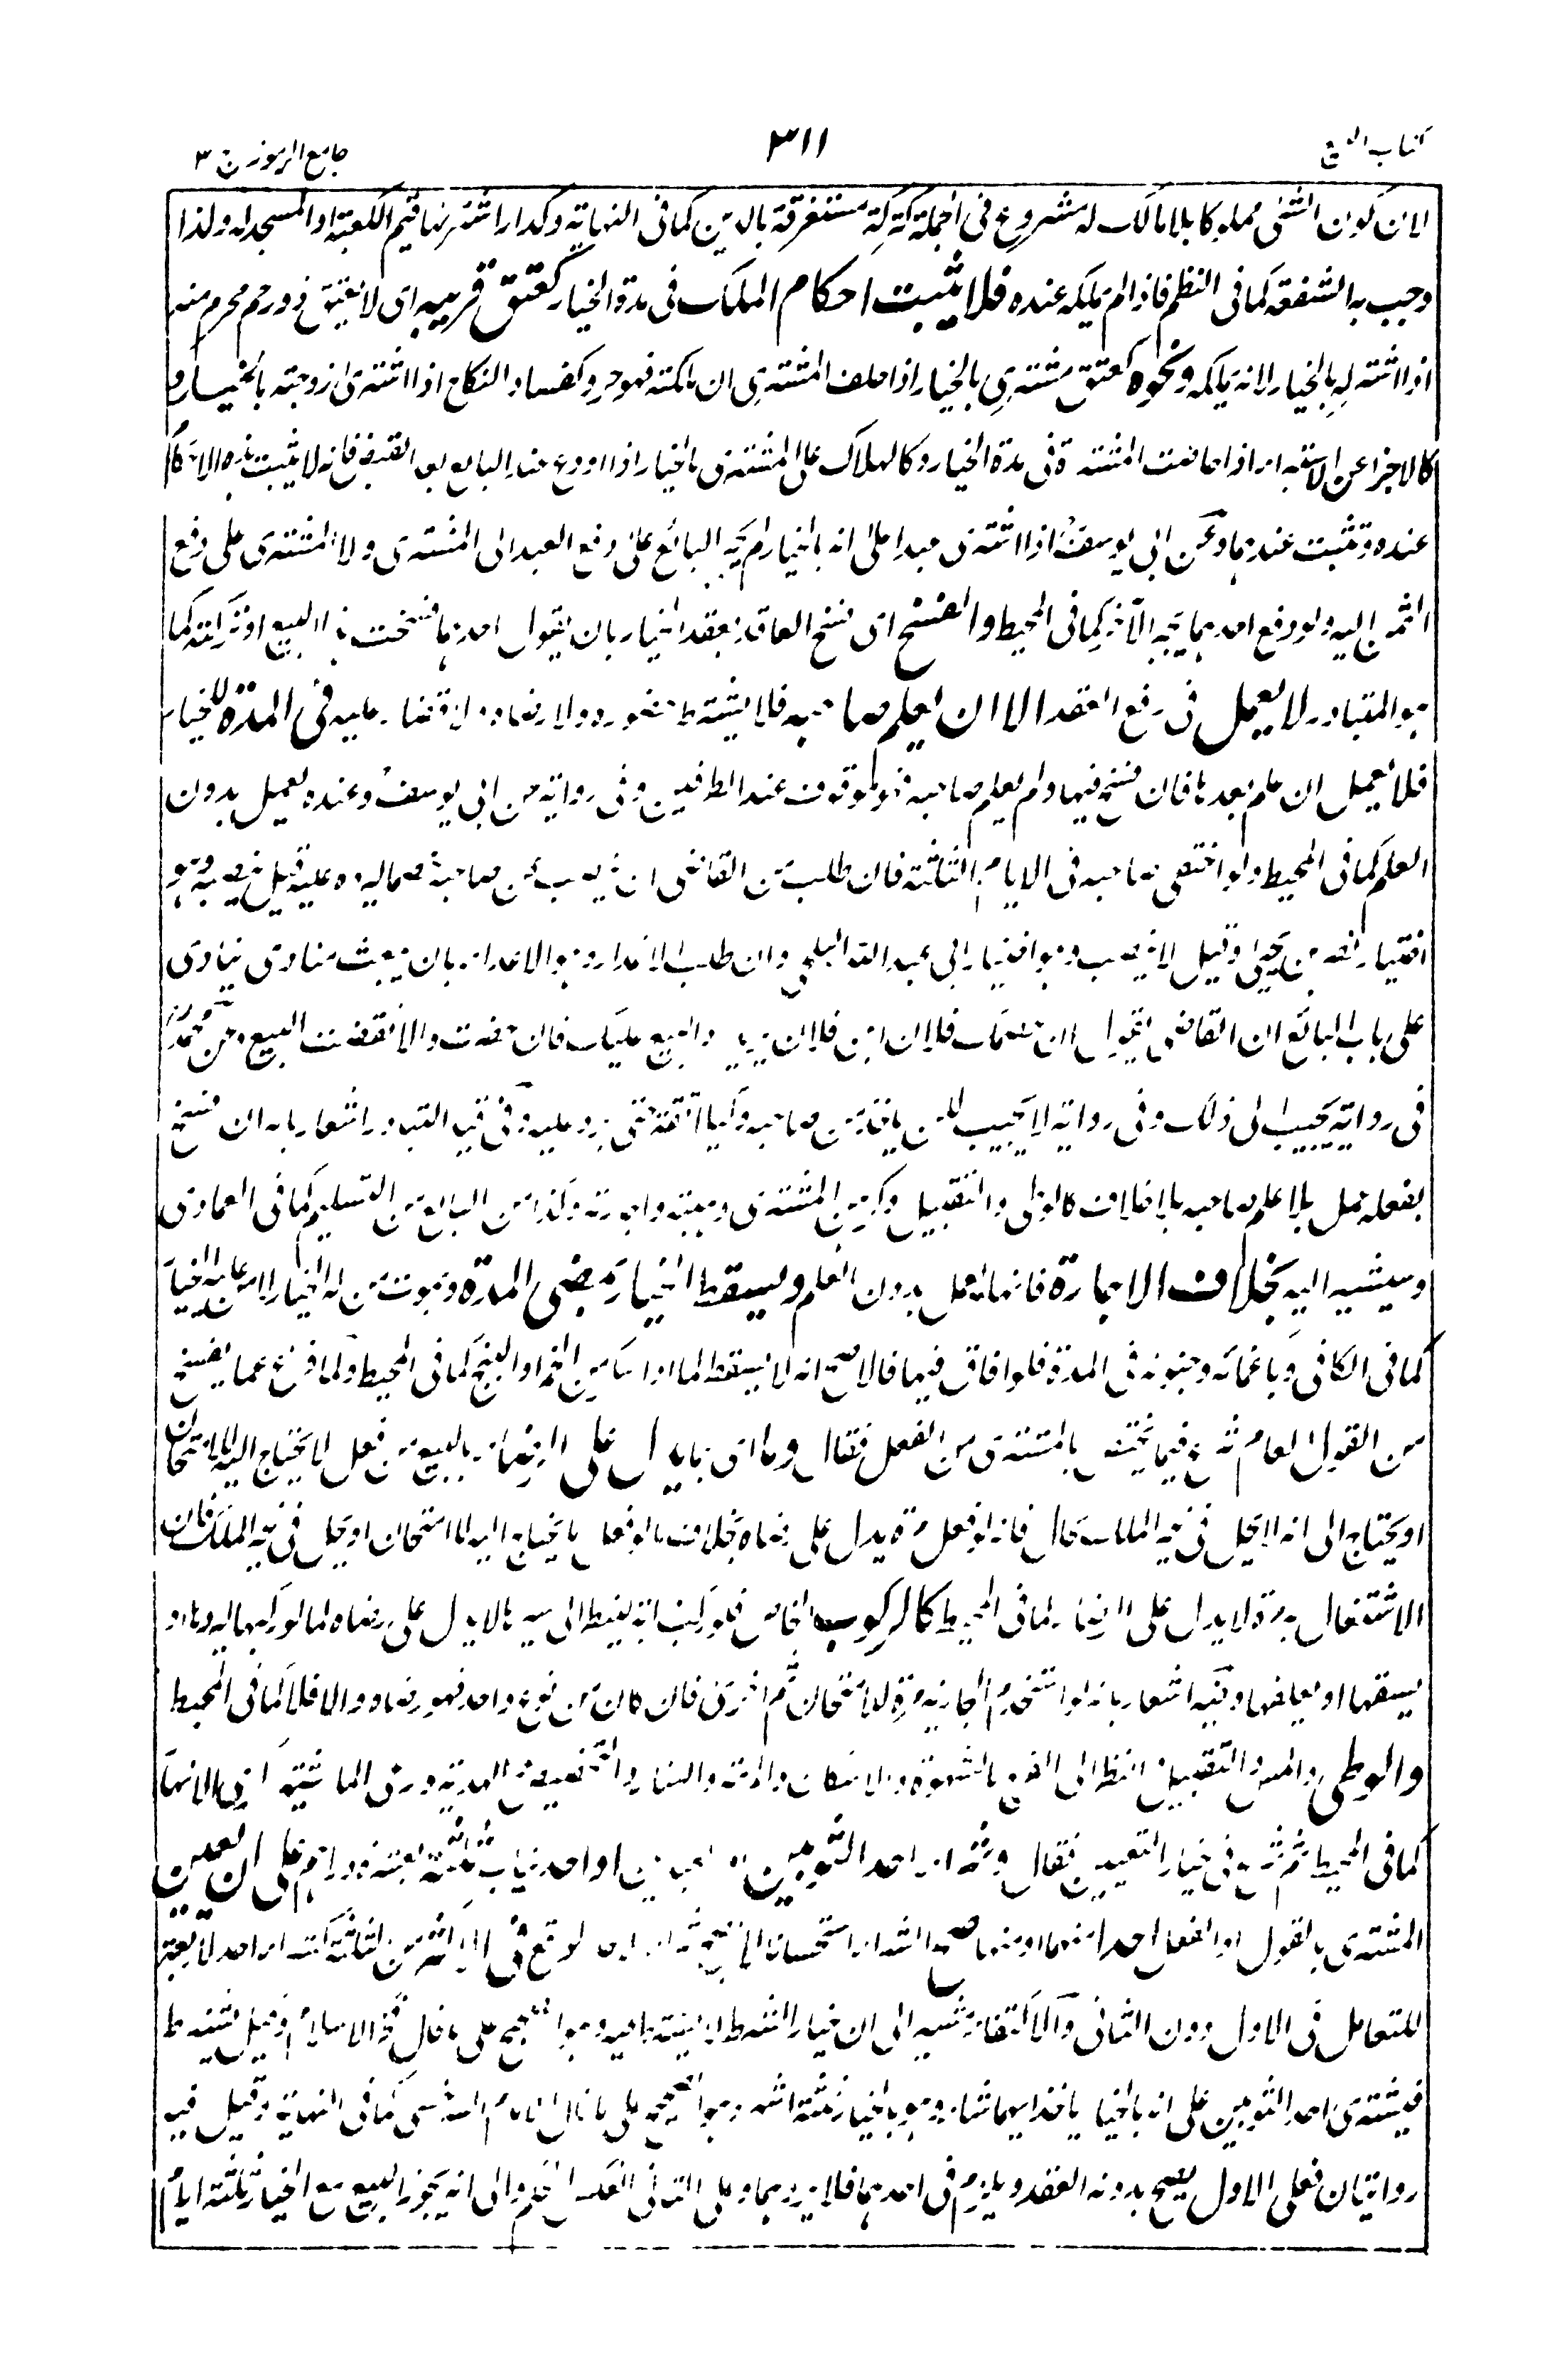 كتاب البيع
٣١١
جامع الرموز ج ٣
لان كون الشئ مملوكا بلا مالك له مشروع فى الجملة كتركة مستغرقة بالدين كما فى النهاية وكدار اشتريها قيم الكعبة او المسجد له ولذا
وجب به الشفقة كما فى النظم فاذا لم يملكه عنده فلا يثبت احكام الملك فى مدة الخيار كعتق قريبه اى لا يعتق ذو رحم محرم منه
اذا اشتر له بالخيار لانه يملكه ونحوه كعتق مشترى بالخيار اذا حلف المشترى ان ملكته فهو حر وكفساد النكاح اذا اشترى زوجته بالخيار و
كالاجزاء عن الاستبراء اذا حاضت المشتراة فى مدة الخيار وكالهلاك على المشترى بالخيار اذا اودع عند البايع بعد القبض فانه لا يثبت هذه الاحكام
عنده وتثبت عندهما وعن ابى يوسف اذا اشترى عبدا على انه بالخيار لم يجبر البائع على دفع العبد الى المشترى ولا المشترى على دفع
الثمن اليه ولو دفع احدهما يجبر الآخر كما فى المحيط والفسخ اى فسخ العاقد بعقد الخيار بان يقول احدهما فسخت هذا البيع او تركته كما
هو المتبادر لا يعمل فى رفع العقد الا ان يعلم صاحبه فلا يشترط حضوره ولا رضاه ولا قضاء عليه فى المدة للخيار
فلا يعمل ان علم بعدها فان فسخ فيها ولم يعلم صاحبه فهو موقوف عند الطرفين وفى رواية عن ابى يوسف وعنده يعمل بدون
العلم كما فى المحيط ولو اختفى صاحبه فى الايام الثلثة فان طلب من القاضى ان ينصب عن صاحبه خصما ليرده عليه قيل ينصبه وهو
اختيار نصر بن يحيى وقيل لا ينصب وهو اختيار ابى عبد الله البلخى وان طلب الاعذار وهو الاعذار بان يبعث مناديا ينادى
على باب البائع ان القاضى يقول ان خصمك فلان ابن فلان يريد رد المبيع عليك فان حضرت والا نقضت البيع وعن محمد
فى رواية يجيب الى ذلك وفى رواية لا يجيب لكن ياخذ من صاحبه وكيلا ثقة حتى يرد عليه وفى قيد التبادر اشعار بانه ان فسخ
بفعله عمل بلا علم صاحبه بلا خلاف كالوطى والتقبيل من المشترى وهبته واجارته وكذا من البايع من التسليم كما فى العمادى
وسيشير اليه بخلاف الاجازة فانها يعمل بدون العلم ويسقط الخيار بمضى المدة وبموت من له الخيار
كما فى الكافى وباغمائه وجنونه فى المدة فلو افاق فيها فالاصح انه لا يسقط اما اذا سكر من الخمر او البنج كما فى المحيط ولما فرغ عما يفسخ
من القول العام شرع فيما يختص بالمشترى من الفعل فقال وما اى بما يدل على الرضاء بالبيع من فعل لا يحتاج اليه الامتحان
او يحتاج الى انه لا يحل فى غير الملك بحال فانه لو فعل مرة يدل على رضاه بخلاف ما لو فعل ما يحتاج اليه الامتحان او يحل فى غير الملك فان
الاشتغال به مرة لا يدل على الرضاء كما فى المحيط كالركوب الخاص فلو ركب دابة لينظر الى سيرها لا يدل على رضاه اما لو ركبها ليردها او
يسقيها او يعلفها وفيه اشعار بانه لو استخدم الجارية مرة للامتحان ثم اخرى فان كان من نوع واحد فهو رضاه والا فلا كما فى المحيط
والوطى والمس والتقبيل والنظر الى الفرج بالشهوة والاسكان والمرمة والبناء
كما فى المحيط ثم شرع فى خيار التعيين فقال وشراء احد الثوبين او احد العبدين او احد ثياب ثلثة بعشرة دراهم على ان يعين
المشترى بالقول او الفعل احدا منهما او منها صح الشراء استحسانا
للتعامل فى الاول دون الثانى والاكتفاء مشير الى ان خيار الشرط لا يشترط فيه وهو الصحيح على ما قال فخر الاسلام وقيل يشترط
فيشترى احد الثوبين على انه بالخيار ياخذ ايهما شاء وهو بالخيار ثلثة اشهر وهو الصحيح على ما قال الامام السرخسى كما فى النهاية وقيل فيه
روايتان فعلى الاول يصح بدونه العقد ويلزم فى احدهما فلا يردهما وعلى الثانى انعكس الحكم والى انه يجوز البيع مع الخيار ثلثة ايام